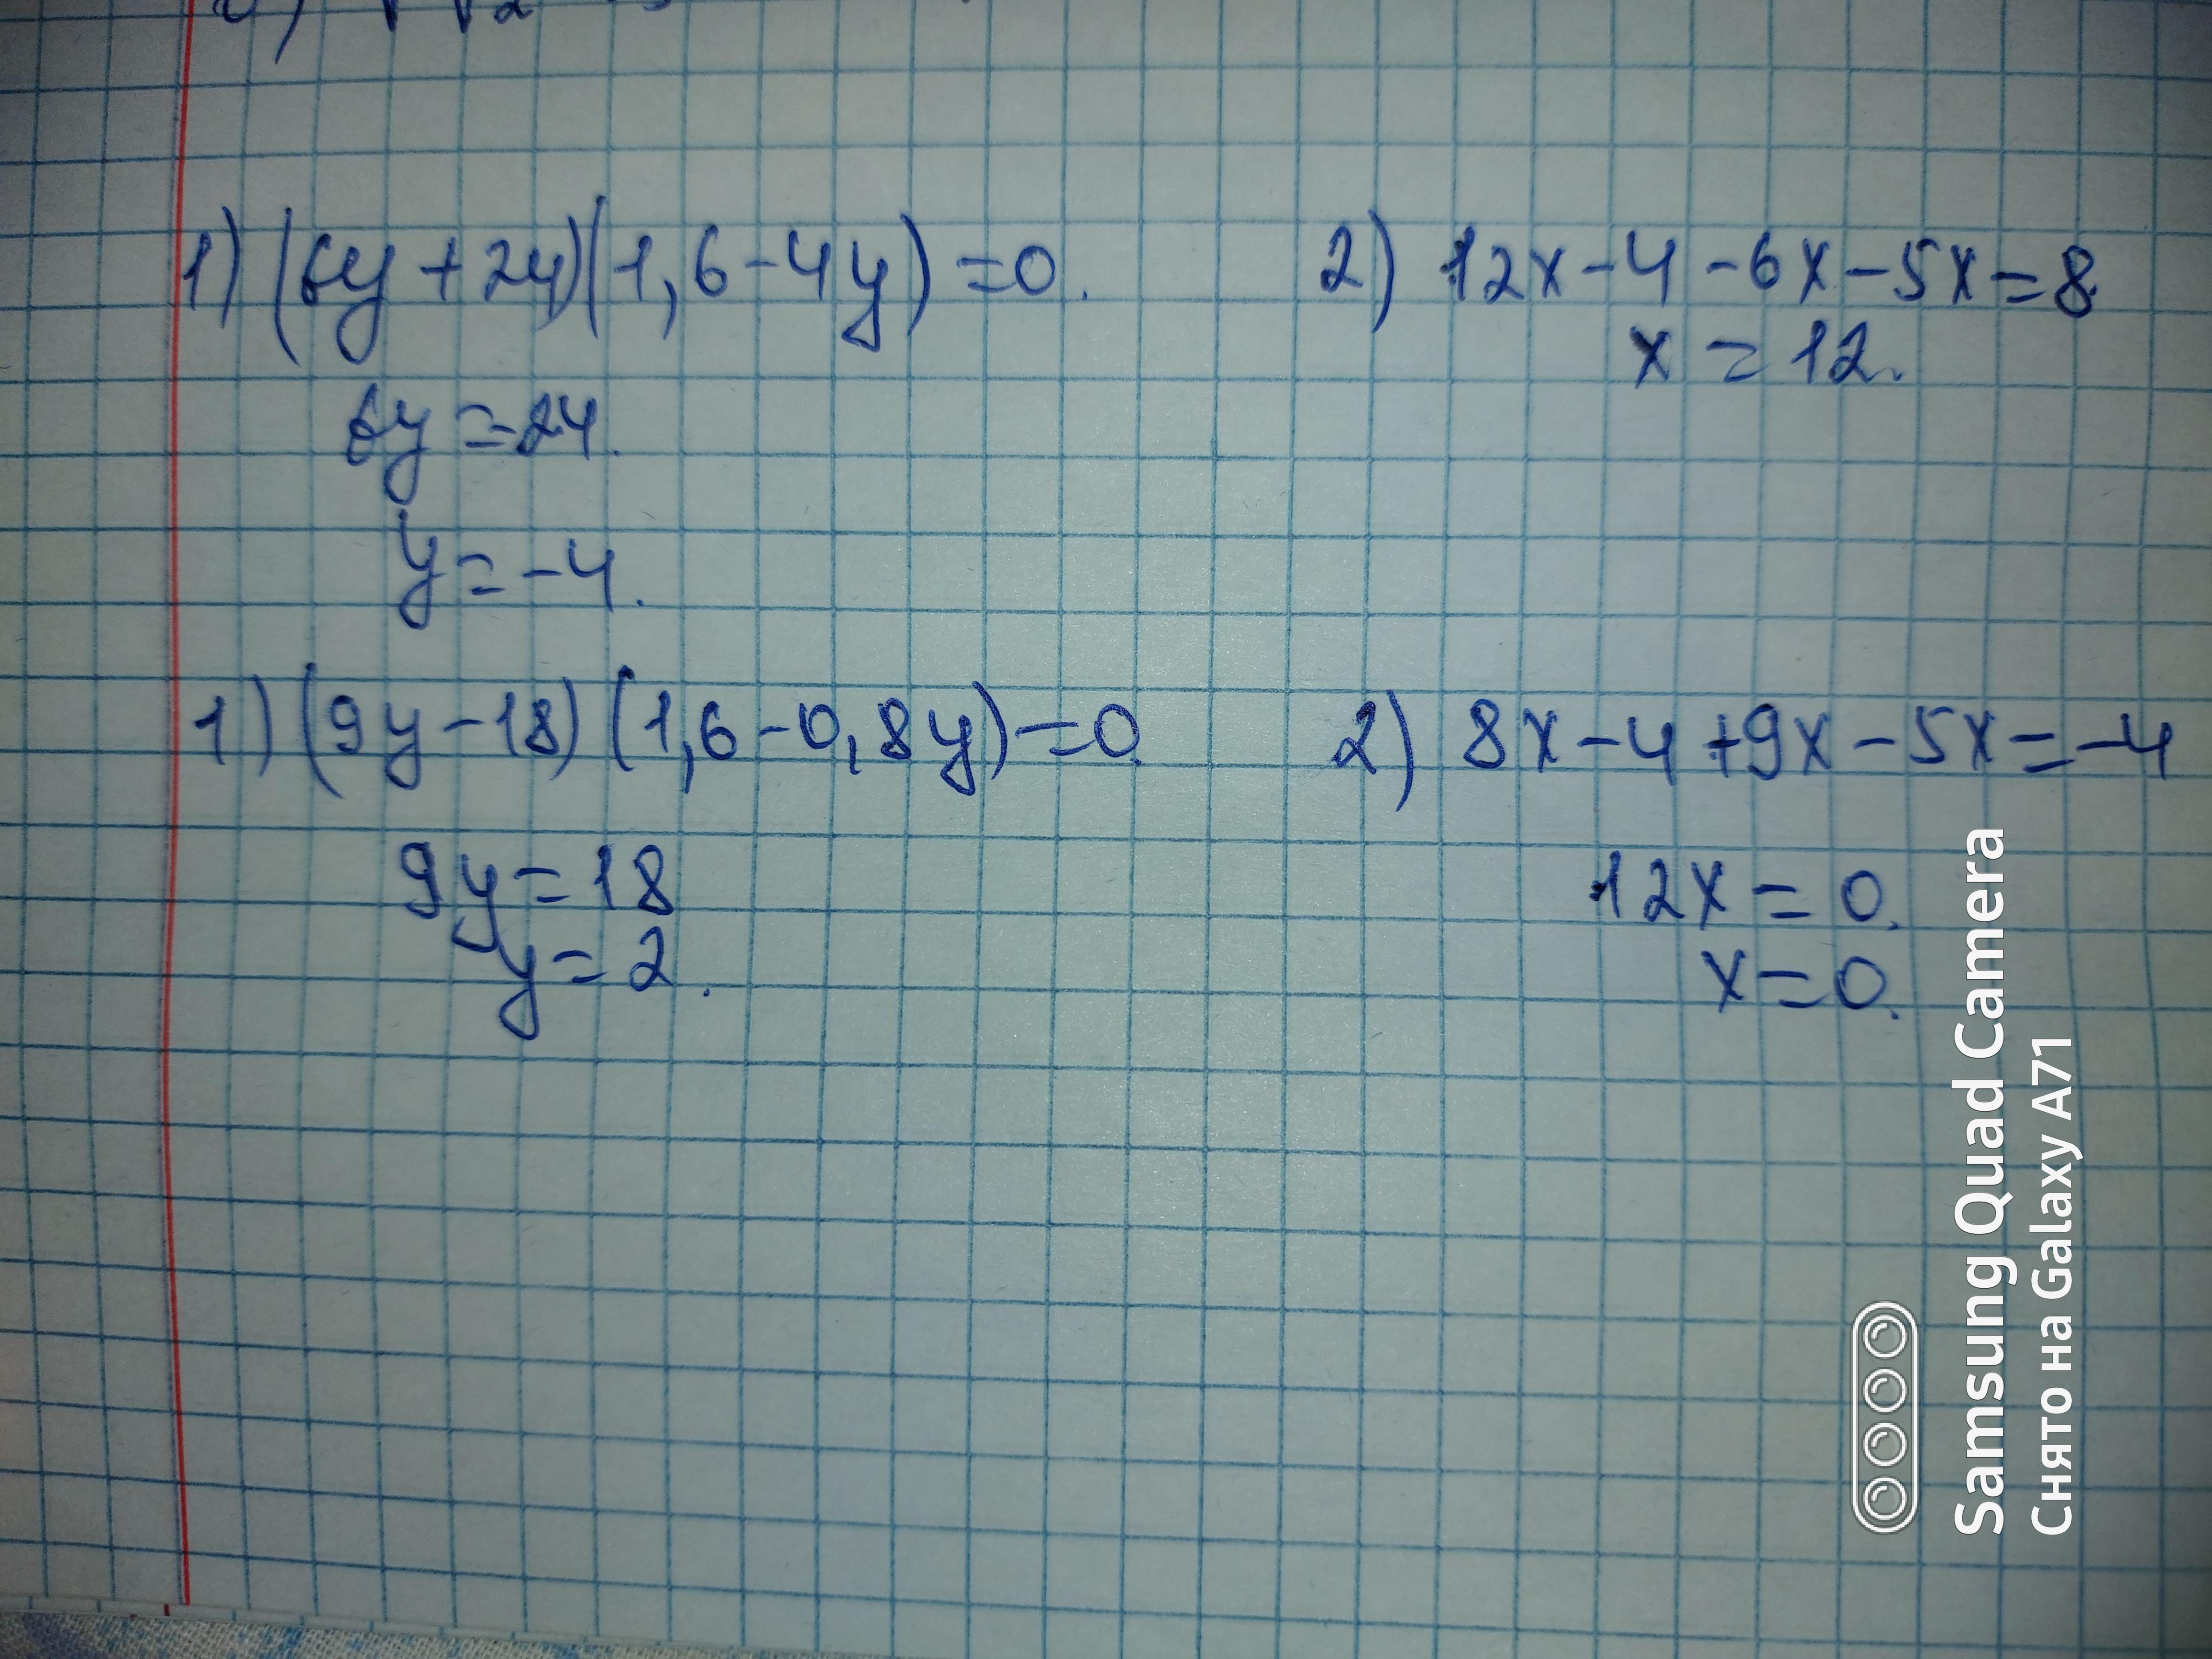 1) (6y+24)(1,6-4y)=0.
6y=-24.
y=-4.
2) 12x-4-6x-5x=8
x=12.
1) (9y-18)(1,6-0,8y)=0
9y=18
y=2.
2) 8x-4+9x-5x=-4
12x=0.
x=0.
Samsung Quad Camera
Снято на Galaxy A71